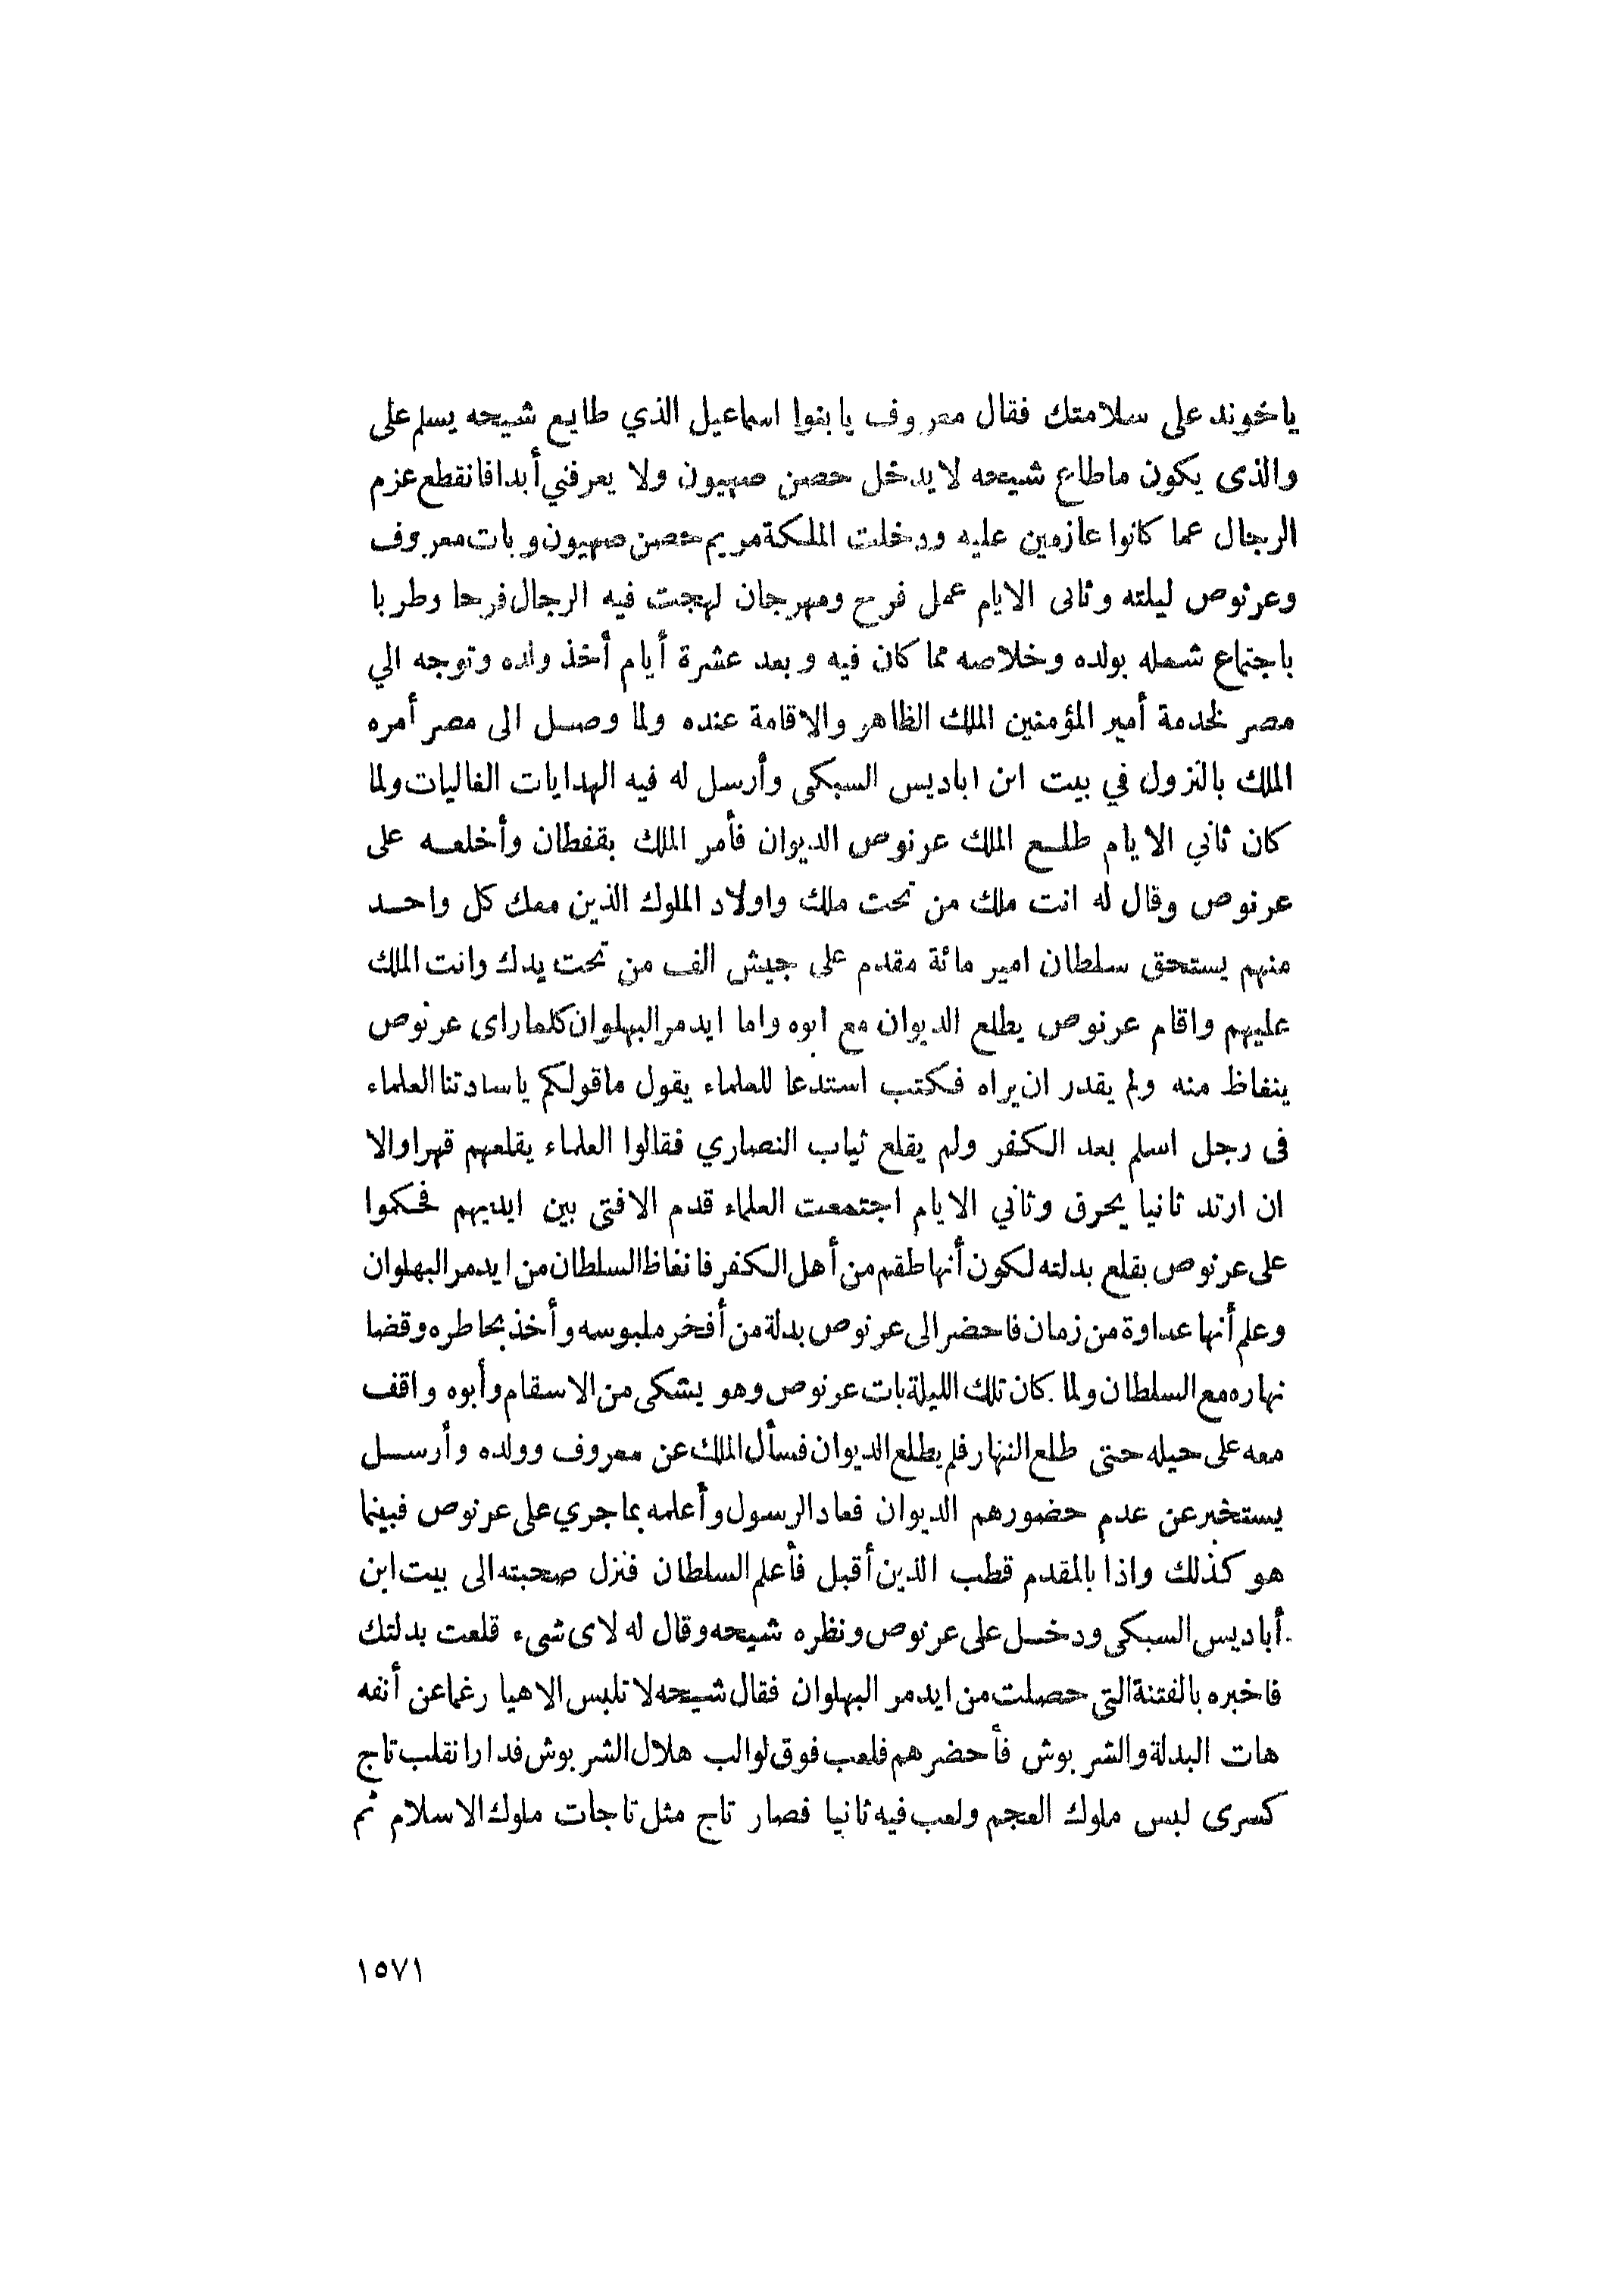 ياخوند على سلامتك فقال معروف يا بنوا اسماعيل الذي طايع شيحه يسلم على
والذى يكون ماطاع شيحه لا يدخل حصن صهيون ولا يعرفني أبدا فانقطع عزم
الرجال عما كانوا عازمين عليه ودخلت الملكة مريم حصن صهيون وبات معروف
وعرنوص ليلته وثانى الايام عمل فرح ومهرجان لهجت فيه الرجال فرحا وطربا
باجتماع شمله بولده وخلاصه مما كان فيه وبعد عشرة أيام أخذ ولده وتوجه الي
مصر لخدمة أمير المؤمنين الملك الظاهر والاقامة عنده ولما وصل الى مصر أمره
الملك بالنزول في بيت ابن اباديس السبكى وأرسل له فيه الهدايات الغاليات ولما
كان ثاني الايام طلع الملك عرنوص الديوان فأمر الملك بقفطان وأخلعه على
عرنوص وقال له انت ملك من تحت ملك واولاد الملوك الذين معك كل واحد
منهم يستحق سلطان امير مائة مقدم على جيش الف من تحت يدك وانت الملك
عليهم واقام عرنوص يطلع الديوان مع ابوه واما ايدمر البهلوان كلما راى عرنوص
ينغاظ منه ولم يقدر ان يراه فكتب استدعا للعلماء يقول ماقولكم ياسادتنا العلماء
فى رجل اسلم بعد الكفر ولم يقلع ثياب النصاري فقالوا العلماء يقلعهم قهرا والا
ان ارتد ثانيا يحرق وثاني الايام اجتمعت العلماء قدم الافتى بين ايديهم فحكموا
على عرنوص بقلع بدلته لكون أنها طقم من أهل الكفر فانغاظ السلطان من ايدمر البهلوان
وعلم أنها عداوة من زمان فاحضر الى عرنوص بدلة من أفخر ملبوسه وأخذ بخاطره وقضا
نهاره مع السلطان ولما كان تلك الليلة بات عرنوص وهو يشكى من الاسقام وأبوه واقف
معه على حيله حتى طلع النهار فلم يطلع الديوان فسأل الملك عن معروف وولده وأرسل
يستخبر عن عدم حضورهم الديوان فعاد الرسول وأعلمه بما جري على عرنوص فبينما
هو كذلك واذا بالمقدم قطب الدين أقبل فأعلم السلطان فنزل صحبته الى بيت ابن
أباديس السبكى ودخل على عرنوص ونظره شيحه وقال له لاى شىء قلعت بدلتك
فاخبره بالفتنة التى حصلت من ايدمر البهلوان فقال شيحه لا تلبس الا هيا رغما عن أنفه
هات البدلة والشربوش فأحضرهم فلعب فوق لوالب هلال الشربوش فدار انقلب تاج
كسرى لبس ملوك العجم ولعب فيه ثانيا فصار تاج مثل تاجات ملوك الاسلام ثم
١٥٧١